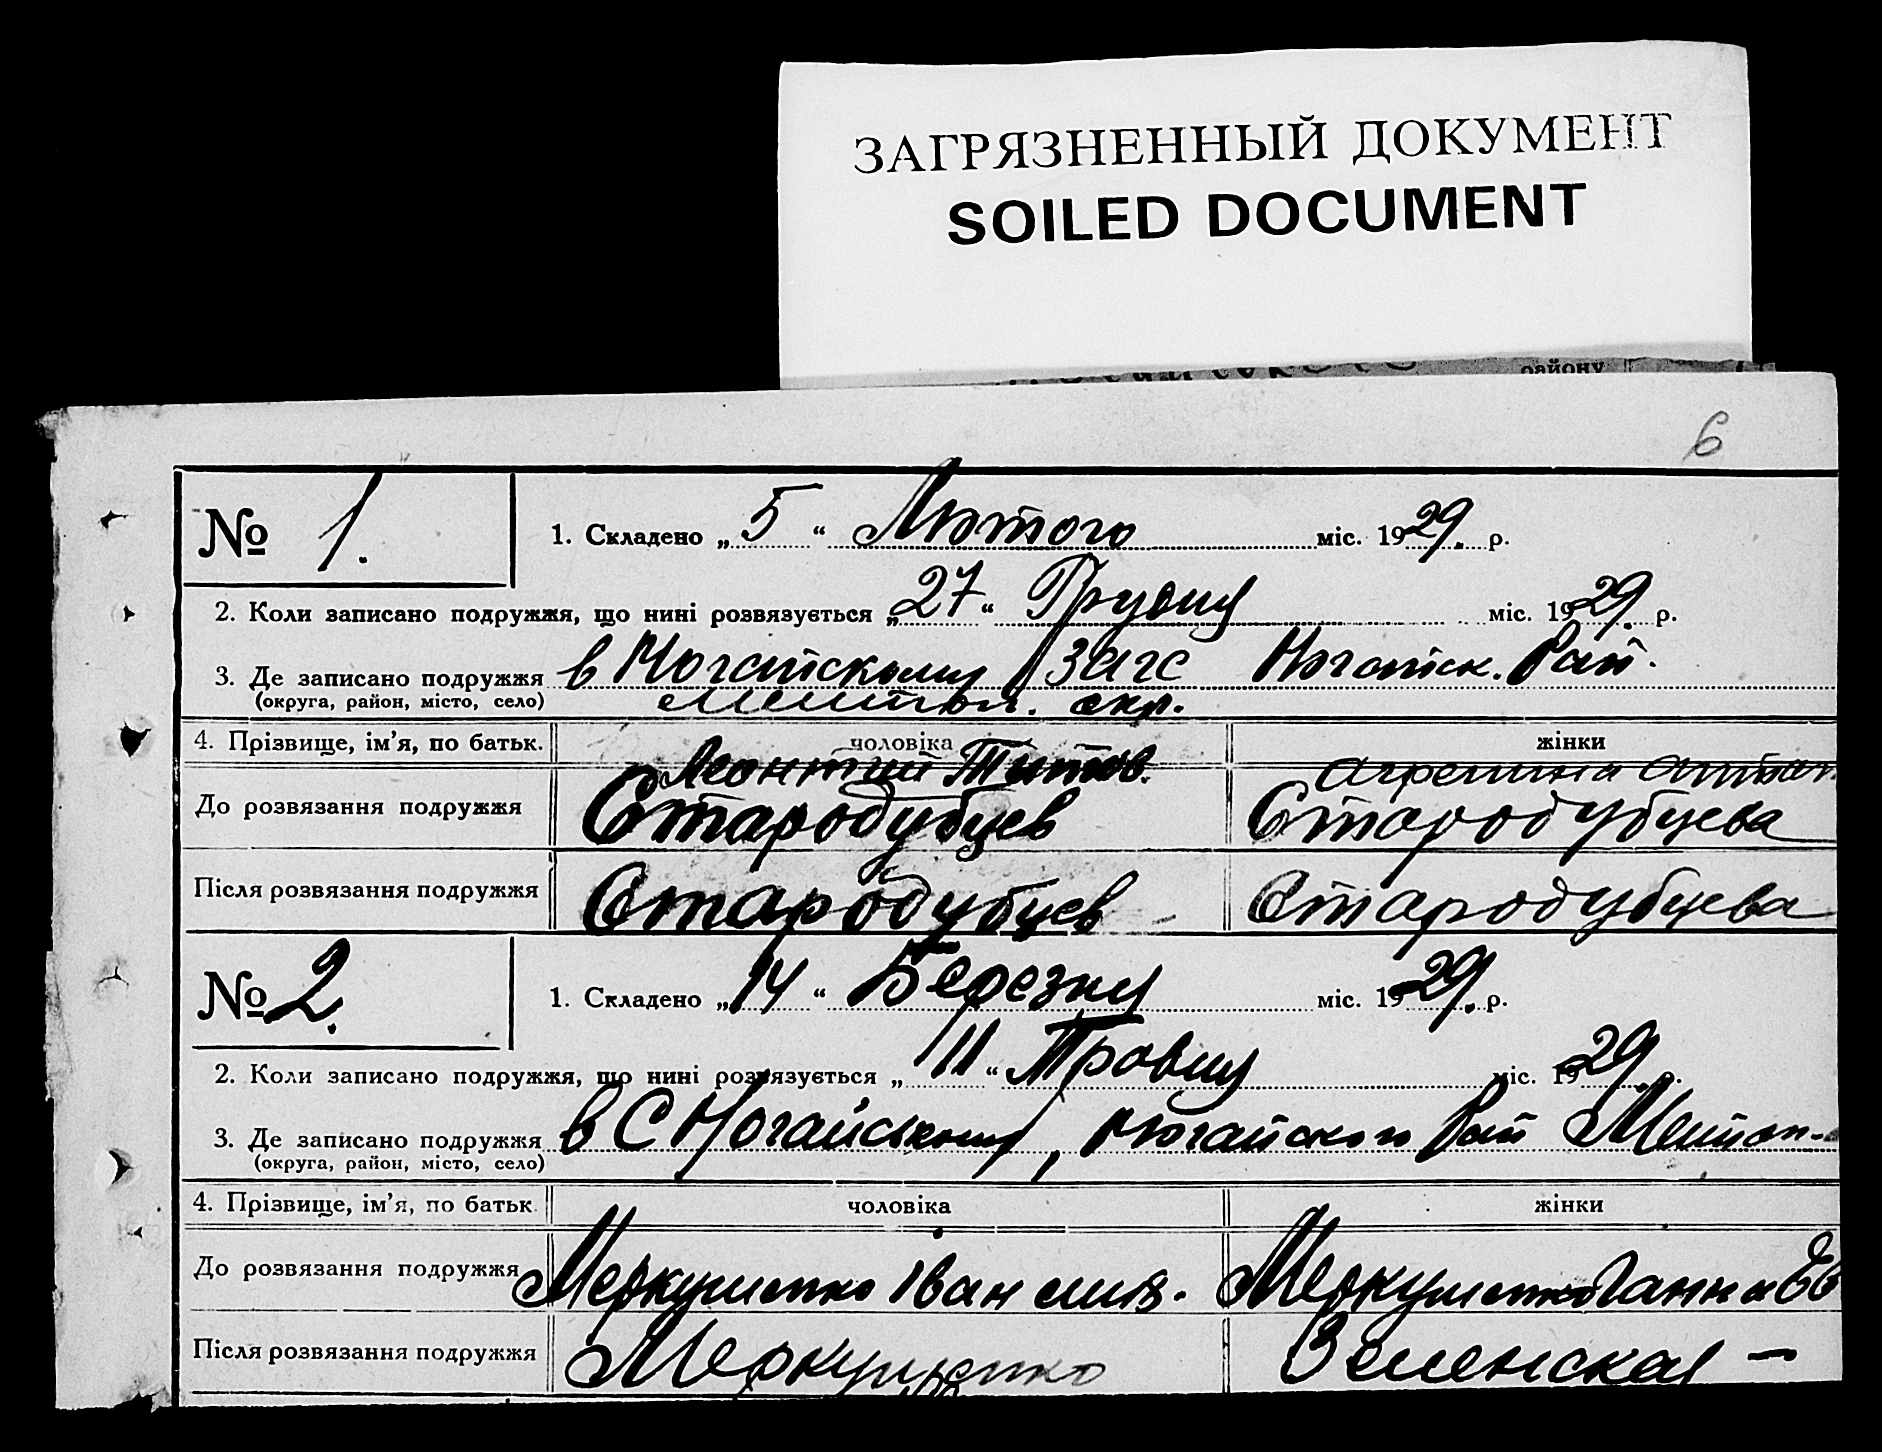 ЗАГРЯЗНЕННЫЙ ДОКУМЕНТ
SOILED DOCUMENT
району
6
№ 1.
1. Складено „ 5 “ Лютого міс. 1929. р.
2. Коли записано подружжя, що нині розвязується „ 27 “ Грудня міс. 1929. р.
3. Де записано подружжя в Ногайскому ЗАГС Ногайск. Рай.
(округа, район, місто, село) окр.
4. Прізвище, ім’я, по батьк. чоловіка жінки
Леонтий Титов. Агрепина
До розвязання подружжя Стародубцев Стародубцева
Після розвязання подружжя Стародубцев Стародубцева
№ 2.
1. Складено „ 14 “ Березня міс. 1929. р.
2. Коли записано подружжя, що нині розвязується „ 11 “ міс. 1929. р.
3. Де записано подружжя в С Ногайському, Ногайского Рай Мелітоп.
(округа, район, місто, село)
4. Прізвище, ім’я, по батьк. чоловіка жінки
До розвязання подружжя Іван Ганна Ев
Після розвязання подружжя Зеленская —